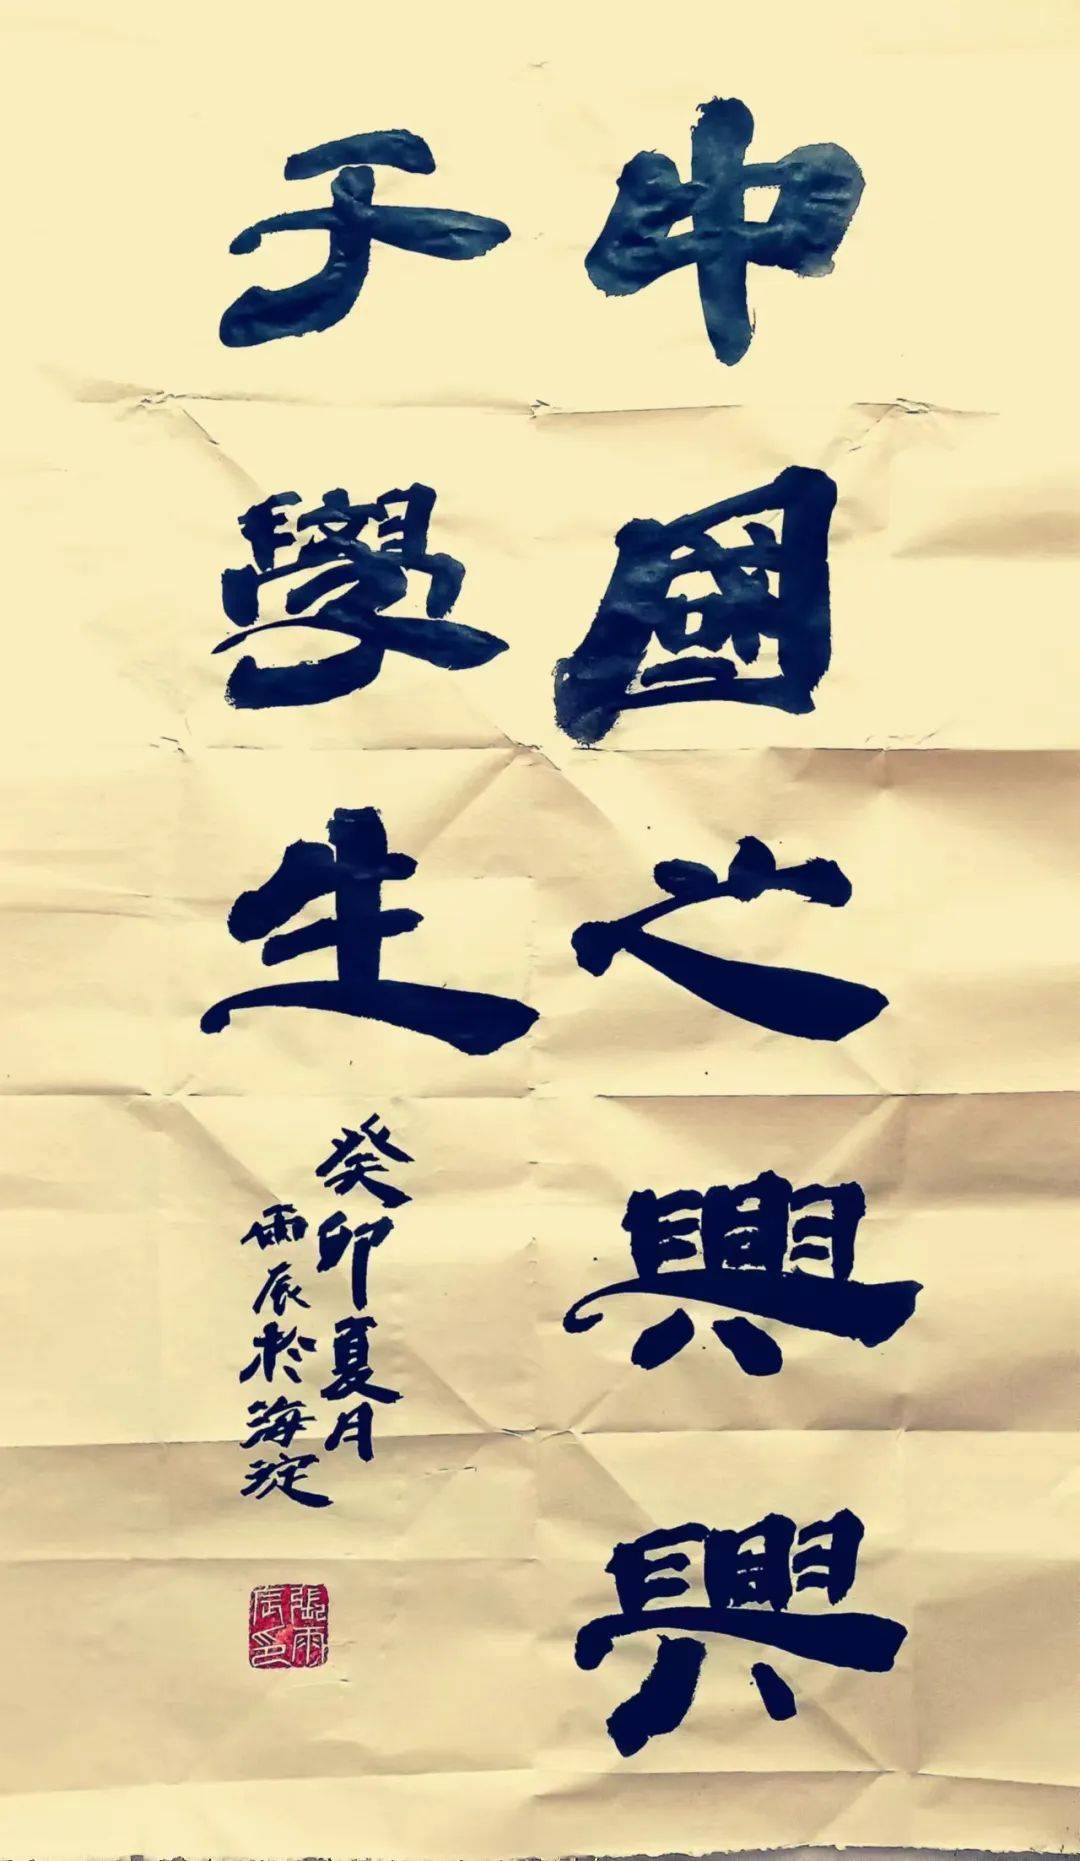 中國之興興
于學生
癸卯夏月
雨辰於海淀
張雨
辰印